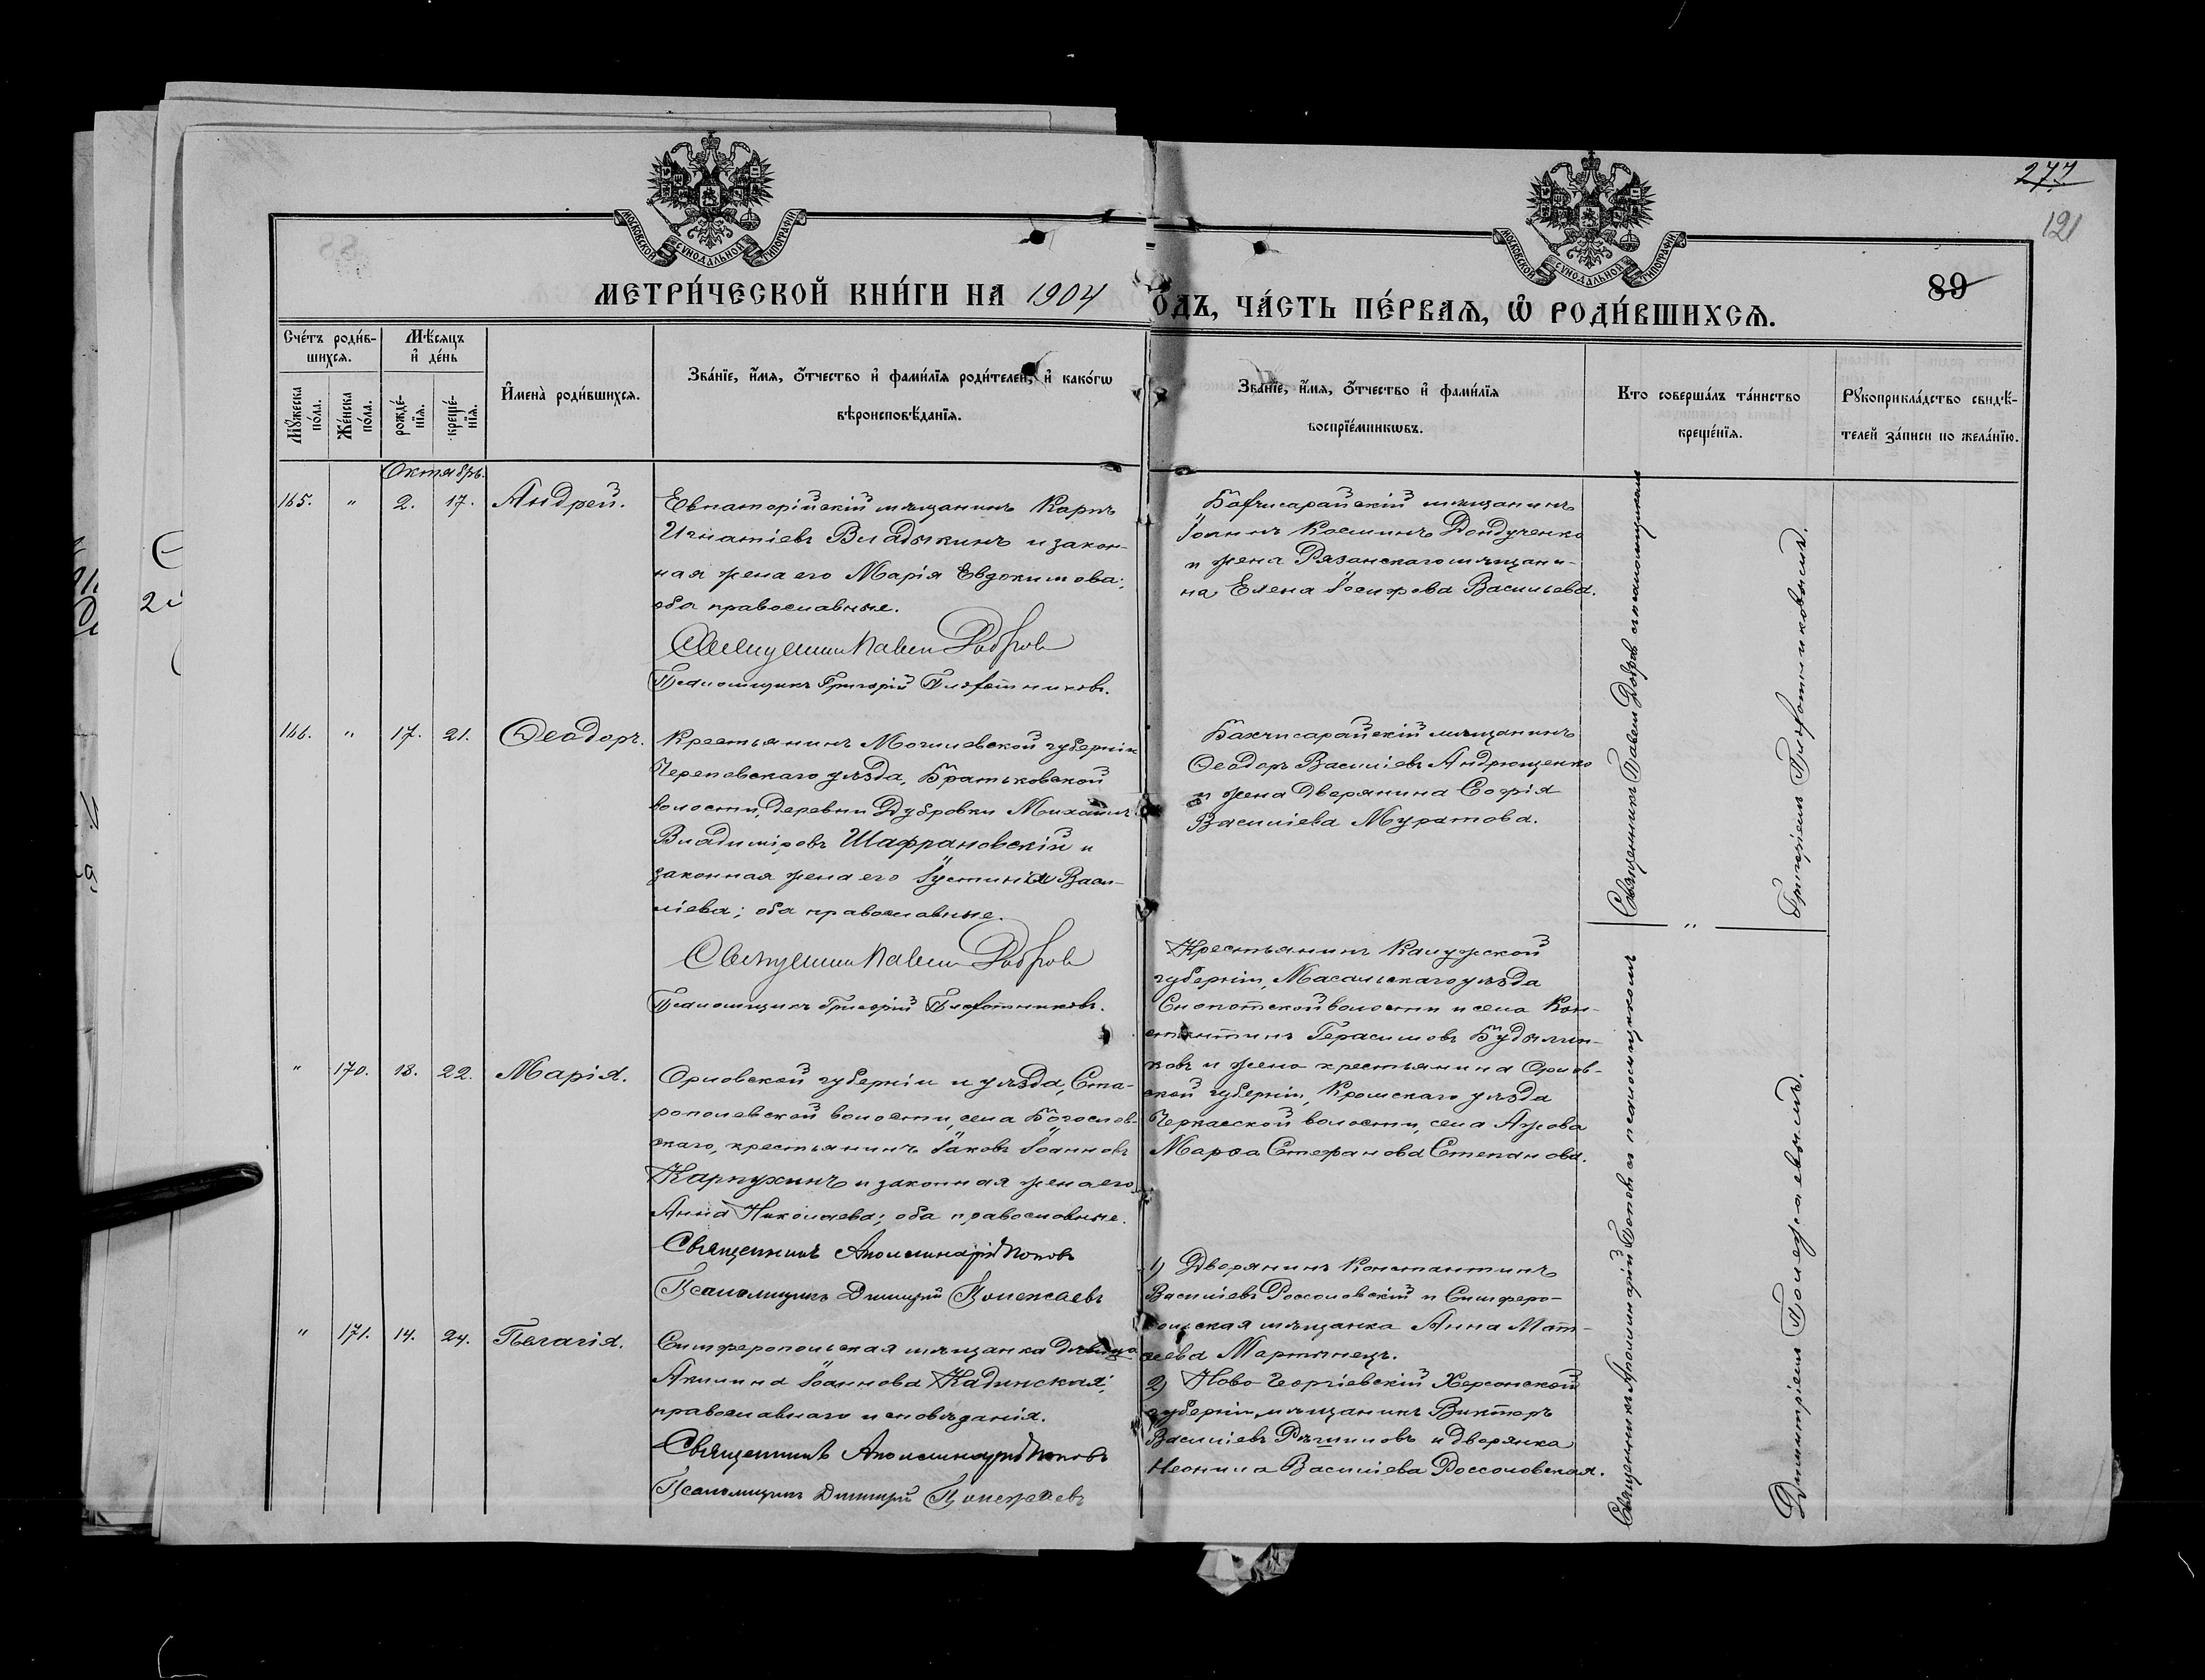 277
121
МОСКОВСКОЙ СУНОДАЛЬНОЙ ТИПОГРАФІИ
МОСКОВСКОЙ СУНОДАЛЬНОЙ ТИПОГРАФІИ
89
МЕТРИ́ЧЕСКОЙ КНИ́ГИ НА 1904
ОДЪ, ЧА́СТЬ ПЕ́РВАѦ, Ѿ РОДИ́ВШИХСѦ.
Сче́тъ роди́в-
шихсѧ.
Мѣ́сяцъ
и҆ де́нь
Мꙋ́жеска
по́ла.
Же́нска
по́ла.
рожде́-
нїѧ.
креще́-
нїѧ.
И҆мена̀ роди́вшихсѧ.
Зва́нїе, и҆́мѧ, ѻ҆́тчество и҆ фами́лїѧ роди́телей, и҆ како́гѡ
вѣроисповѣ́данїѧ.
Зва́нїе, и҆́мѧ, ѻ҆́тчество и҆ фами́лїѧ
воспрїе́мникѡвъ.
Кто соверша́лъ та́инство
креще́нїѧ.
Рꙋкоприкла́дство свидѣ́-
телей за́писи по жела́нїю.
Октябрь.
165. " 2. 17. Андрей.
Евпаторійскій мѣщанинъ Карпъ
Игнатіевъ Владыкинъ и закон-
ная жена его Марія Евдокимова;
оба православные.
Священникъ Павелъ Добровъ
Псаломщикъ Григорій Плотниковъ.
Бахчисарайскій мѣщанинъ
Іоаннъ Косминъ Дондученко
и жена Рязанскаго мѣщани-
на Елена Іосифова Васильева.
166. " 17. 21. Ѳеодоръ.
Крестьянинъ Могилевской губерніи
уѣзда, Братьковской
волости, деревни Дубровки Михаилъ
Владиміровъ Шафрановскій и
законная жена его Іустинія Васи-
ліева; оба православные.
Священникъ Павелъ Добровъ
Псаломщикъ Григорій Плотниковъ.
Бахчисарайскій мѣщанинъ
Ѳеодоръ Василіевъ Андрющенко
и жена дворянина Софія
Василіева Муратова.
" 170. 18. 22. Марія.
Орловской губерніи и уѣзда, Ста-
рополевской волости, села Богослов-
скаго, крестьянинъ Іаковъ Іоанновъ
Карпухинъ и законная жена его
Анна Николаева; оба православные.
Священникъ Аполлинарій Поповъ
Псаломщикъ Димитрій Полежаевъ
Крестьянинъ Калужской
губерніи, Масальскаго уѣзда
Снопотской волости и села Кон-
стантинъ Герасимовъ
и жена крестьянина Орлов-
ской губерніи, Кромскаго уѣзда
Черкасской волости, села
Марѳа Стефанова Степанова.
" 171. 14. 24. Пелагія.
Симферопольская мѣщанка дѣвица
Акилина Іоаннова Кадинская;
православнаго исповѣданія.
Священникъ Аполлинарій Поповъ
Псаломщикъ Димитрій Полежаевъ
1) Дворянинъ Константинъ
Василіевъ Россоловскій и Симферо-
польская мѣщанка Анна Мат-
ѳеева Мартынецъ.
2) Ново-Георгіевскій Херсонской
губерніи, мѣщанинъ Викторъ
Василіевъ и дворянка
Неонила Василіева Россоловская.
Священникъ Павелъ Добровъ съ псаломщикомъ
Григоріемъ Плотниковымъ.
"
Священникъ Аполлинарій Поповъ съ псаломщикомъ
Димитріемъ Полежаевымъ.